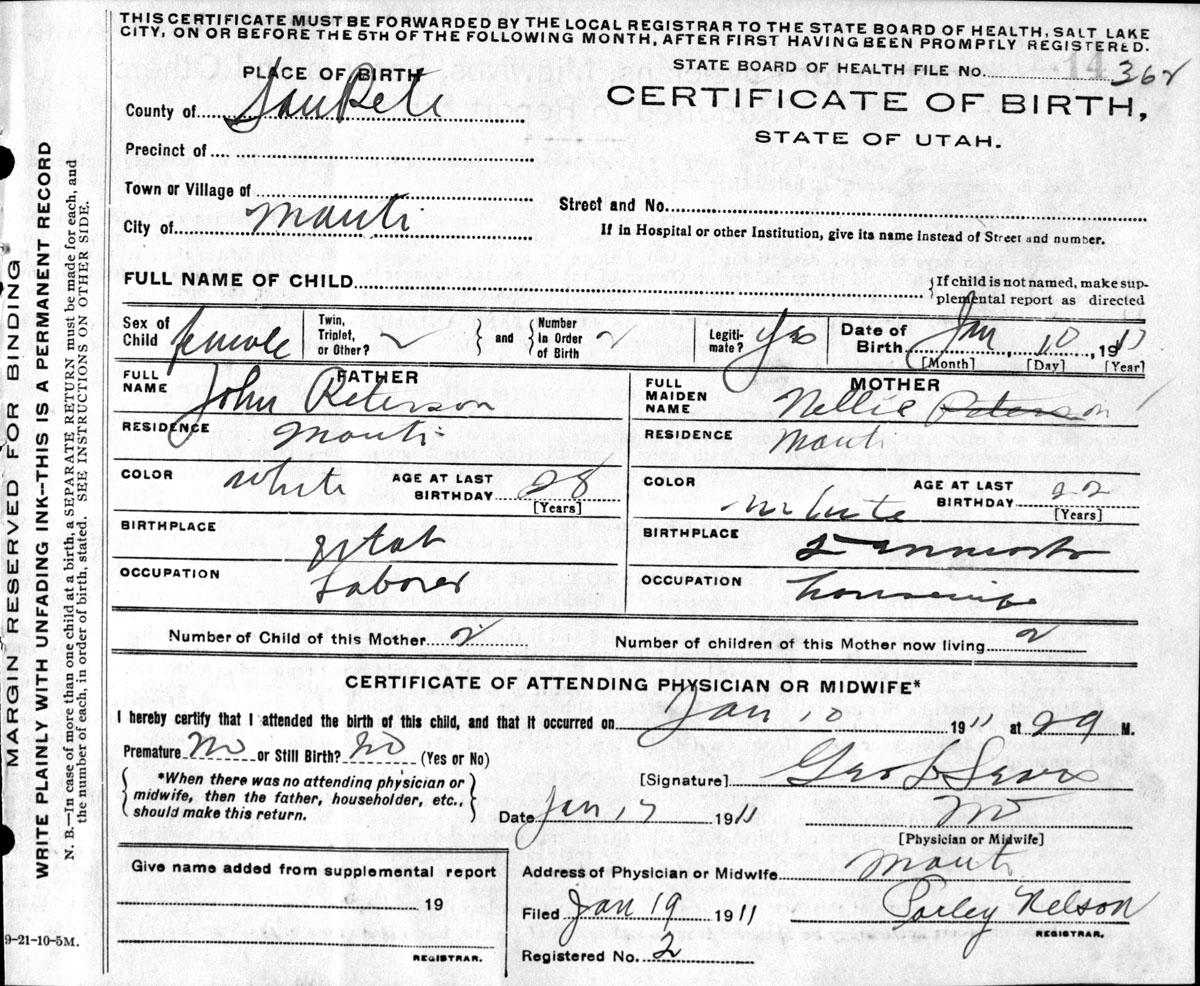 THIS CERTIFICATE MUST BE FORWARDED BY THE LOCAL REGISTRAR TO THE STATE BOARD OF HEALTH, SALT LAKE
CITY, ON OR BEFORE THE 5TH OF THE FOLLOWING MONTH, AFTER FIRST HAVING BEEN PROMPTLY REGISTERED.
STATE BOARD OF HEALTH FILE NO. 362
PLACE OF BIRTH
CERTIFICATE OF BIRTH,
STATE OF UTAH.
County of SanPete
Precinct of
Town or Village of
Street and No.
City of Manti
If in Hospital or other Institution, give its name instead of Street and number.
FULL NAME OF CHILD
If child is not named, make sup-
plemental report as directed
Sex of Child female Twin, Triplet, or Other? and Number in Order of Birth Legiti-mate? Yes Date of Birth Jan 10, 1911
[Month] [Day] [Year]
FATHER
FULL NAME John Peterson
RESIDENCE Manti
COLOR white AGE AT LAST BIRTHDAY 28
[Years]
BIRTHPLACE Utah
OCCUPATION Laborer
MOTHER
FULL MAIDEN NAME Nellie Peterson
RESIDENCE Manti
COLOR White AGE AT LAST BIRTHDAY 22
[Years]
BIRTHPLACE Denmark
OCCUPATION housewife
Number of Child of this Mother 2 Number of children of this Mother now living 2
CERTIFICATE OF ATTENDING PHYSICIAN OR MIDWIFE*
I hereby certify that I attended the birth of this child, and that it occurred on Jan 10 1911 at M.
Premature No or Still Birth? No (Yes or No)
*When there was no attending physician or
midwife, then the father, householder, etc.,
should make this return.
[Signature] Geo L Sears
MD
[Physician or Midwife]
Date Jan 17 1911
Address of Physician or Midwife Manti
Give name added from supplemental report
19
REGISTRAR.
Filed Jan 19 1911 Nelson
REGISTRAR.
Registered No. 2
9-21-10-5M.
MARGIN RESERVED FOR BINDING
WRITE PLAINLY WITH UNFADING INK--THIS IS A PERMANENT RECORD
N. B.—In case of more than one child at a birth, a SEPARATE RETURN must be made for each, and
the number of each, in order of birth, stated. SEE INSTRUCTIONS ON OTHER SIDE.